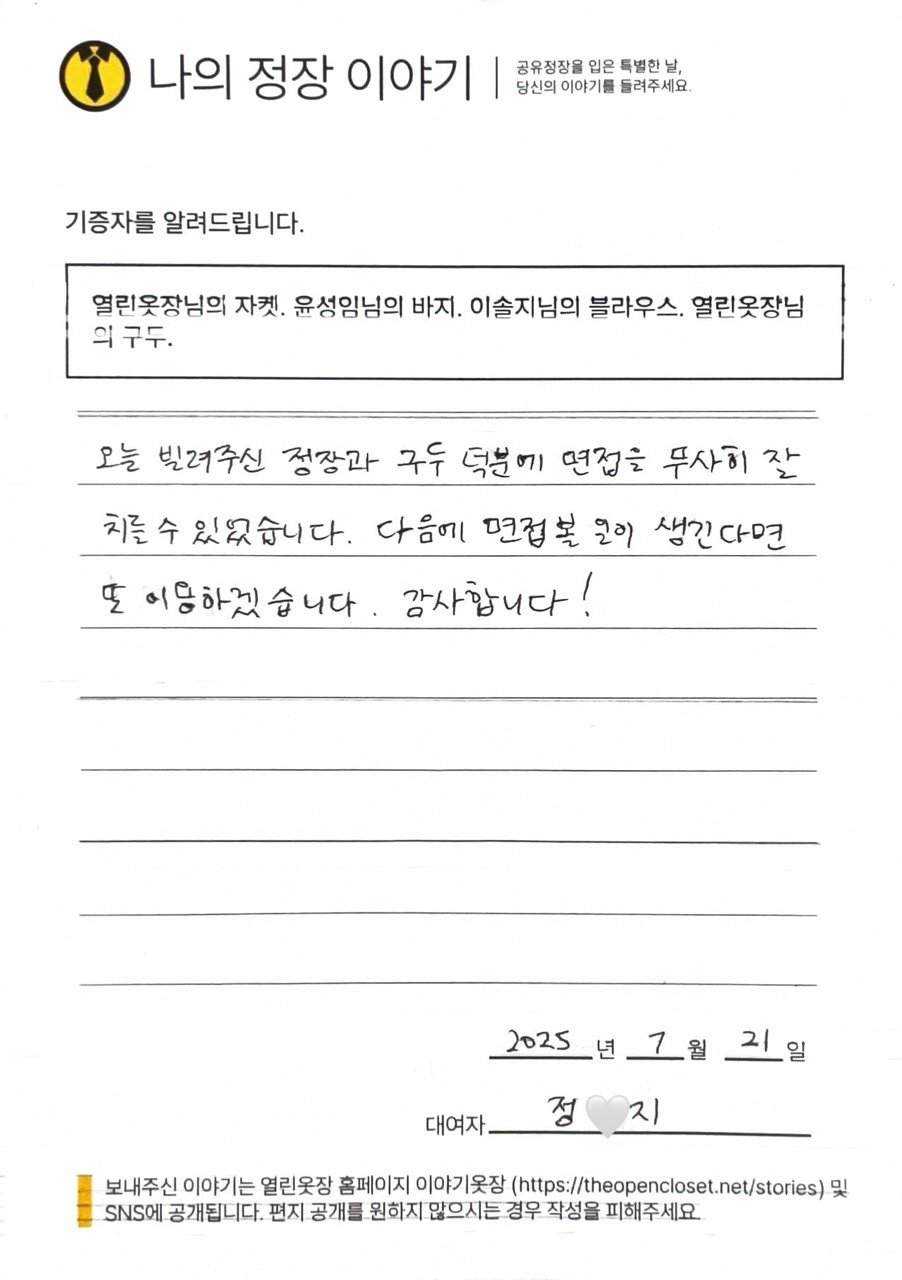 나의 정장 이야기
공유정장을 입은 특별한 날,
당신의 이야기를 들려주세요.
기증자를 알려드립니다.
열린옷장님의 자켓. 윤성임님의 바지. 이솔지님의 블라우스. 열린옷장님
의 구두.
오늘 빌려주신 정장과 구두 덕분에 면접을 무사히 잘
치를 수 있었습니다. 다음에 면접볼 일이 생긴다면
또 이용하겠습니다. 감사합니다!
2025 년 7 월 21 일
대여자 정 지
보내주신 이야기는 열린옷장 홈페이지 이야기옷장 (https://theopencloset.net/stories) 및
SNS에 공개됩니다. 편지 공개를 원하지 않으시는 경우 작성을 피해주세요.